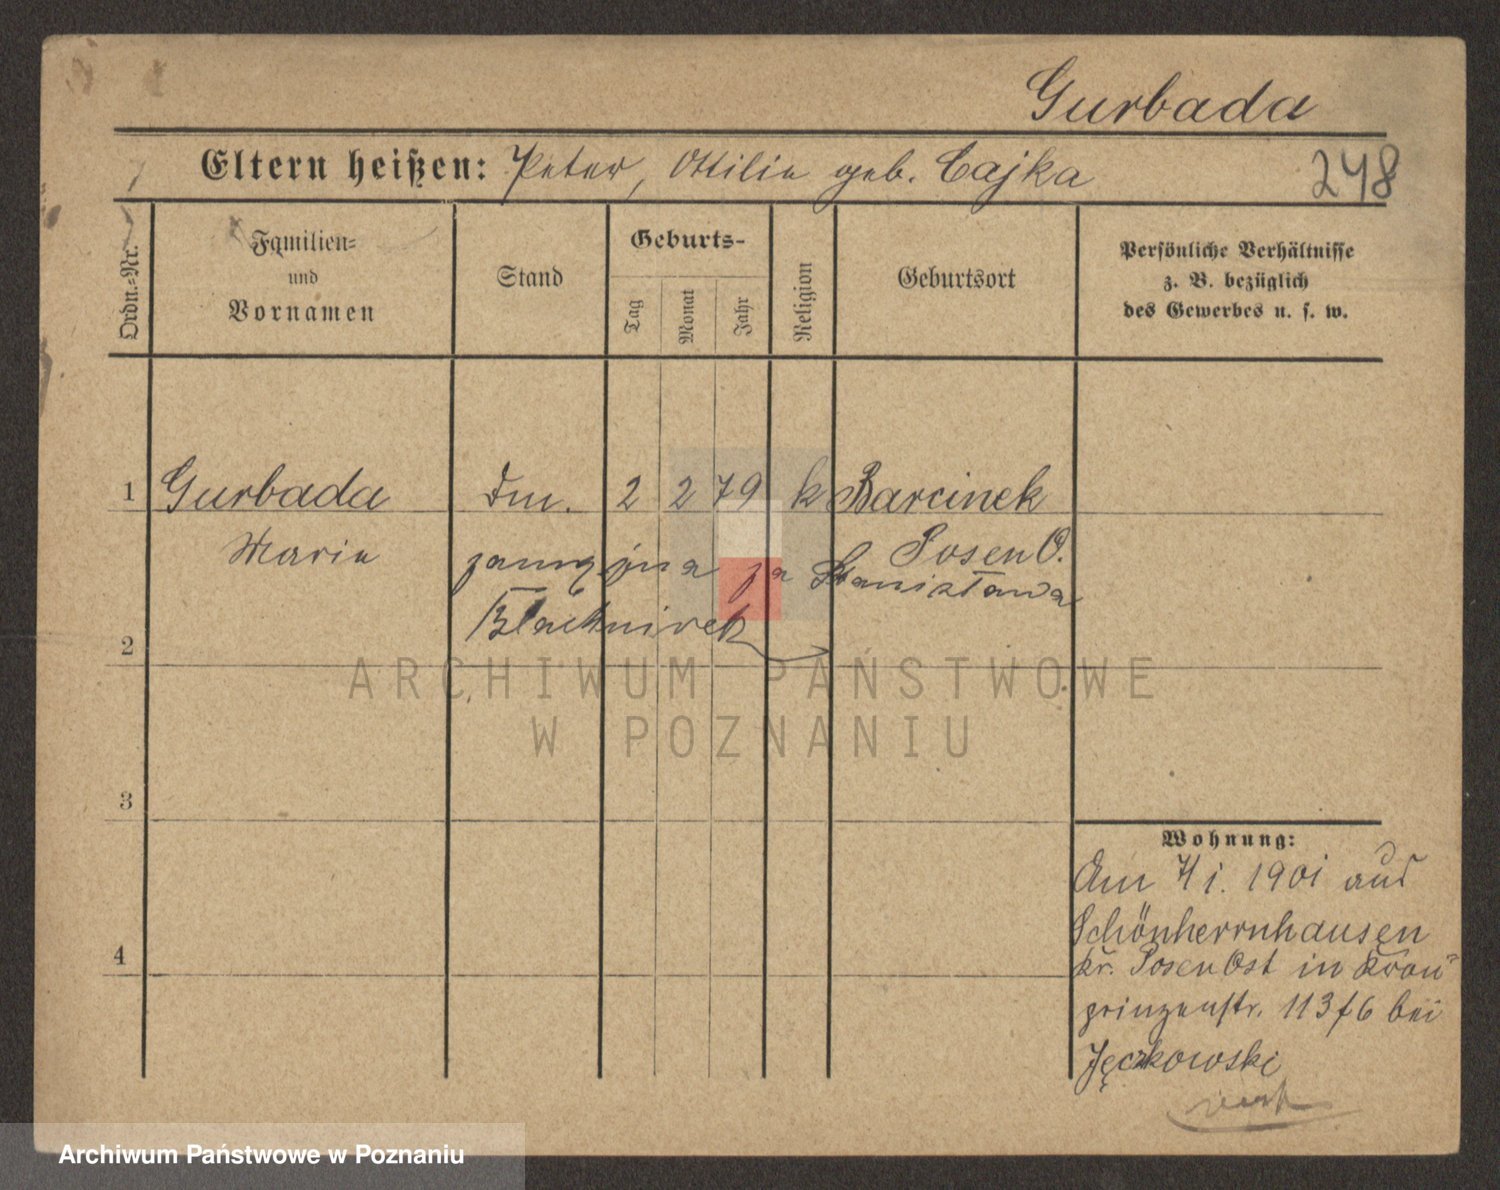 Gurbada
Eltern heißen: Peter, Ottilie geb. Cajka
248
Ordn.-Nr.
Familien-
und
Vornamen
Stand
Geburts-
Tag
Monat
Jahr
Religion
Geburtsort
Persönliche Verhältnisse
z. B. bezüglich
des Gewerbes u. s. w.
1 Gurbada Dm. 2 2 79 k Barcinek
Marie Posen O.
zamężna za Stanisława
2
3
4
Wohnung:
Am 7/1. 1901 aus
Schönherrnhausen
Kr. Posen Ost in Kron-
prinzenstr. 113 f6 bei
Jęczkowski
ARCHIWUM PAŃSTWOWE
W POZNANIU
Archiwum Państwowe w Poznaniu